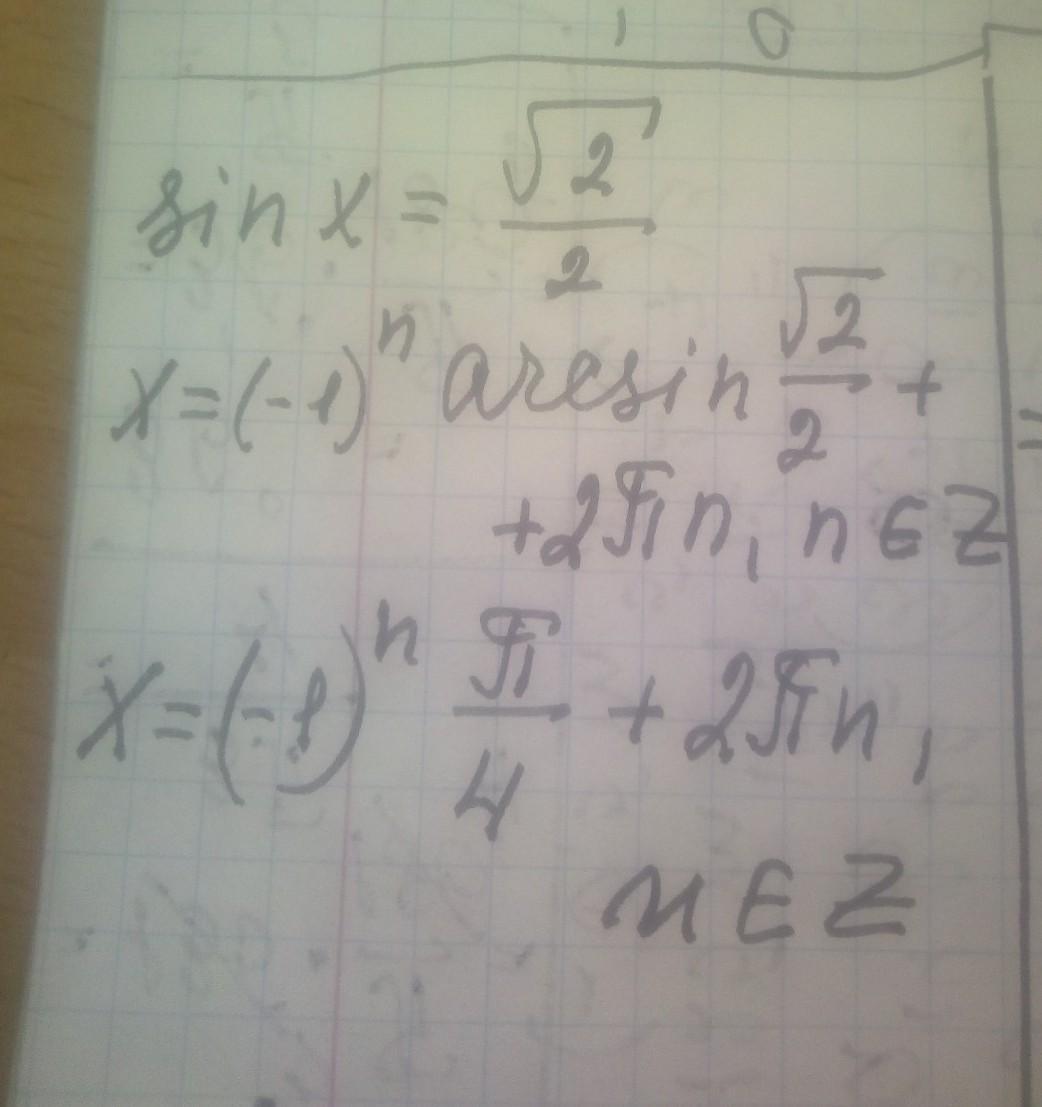 1 0
sin x = √2/2
x = (-1)ⁿ arcsin √2/2 +
+ 2πn, n ∈ Z
x = (-1)ⁿ π/4 + 2πn,
n ∈ Z
=